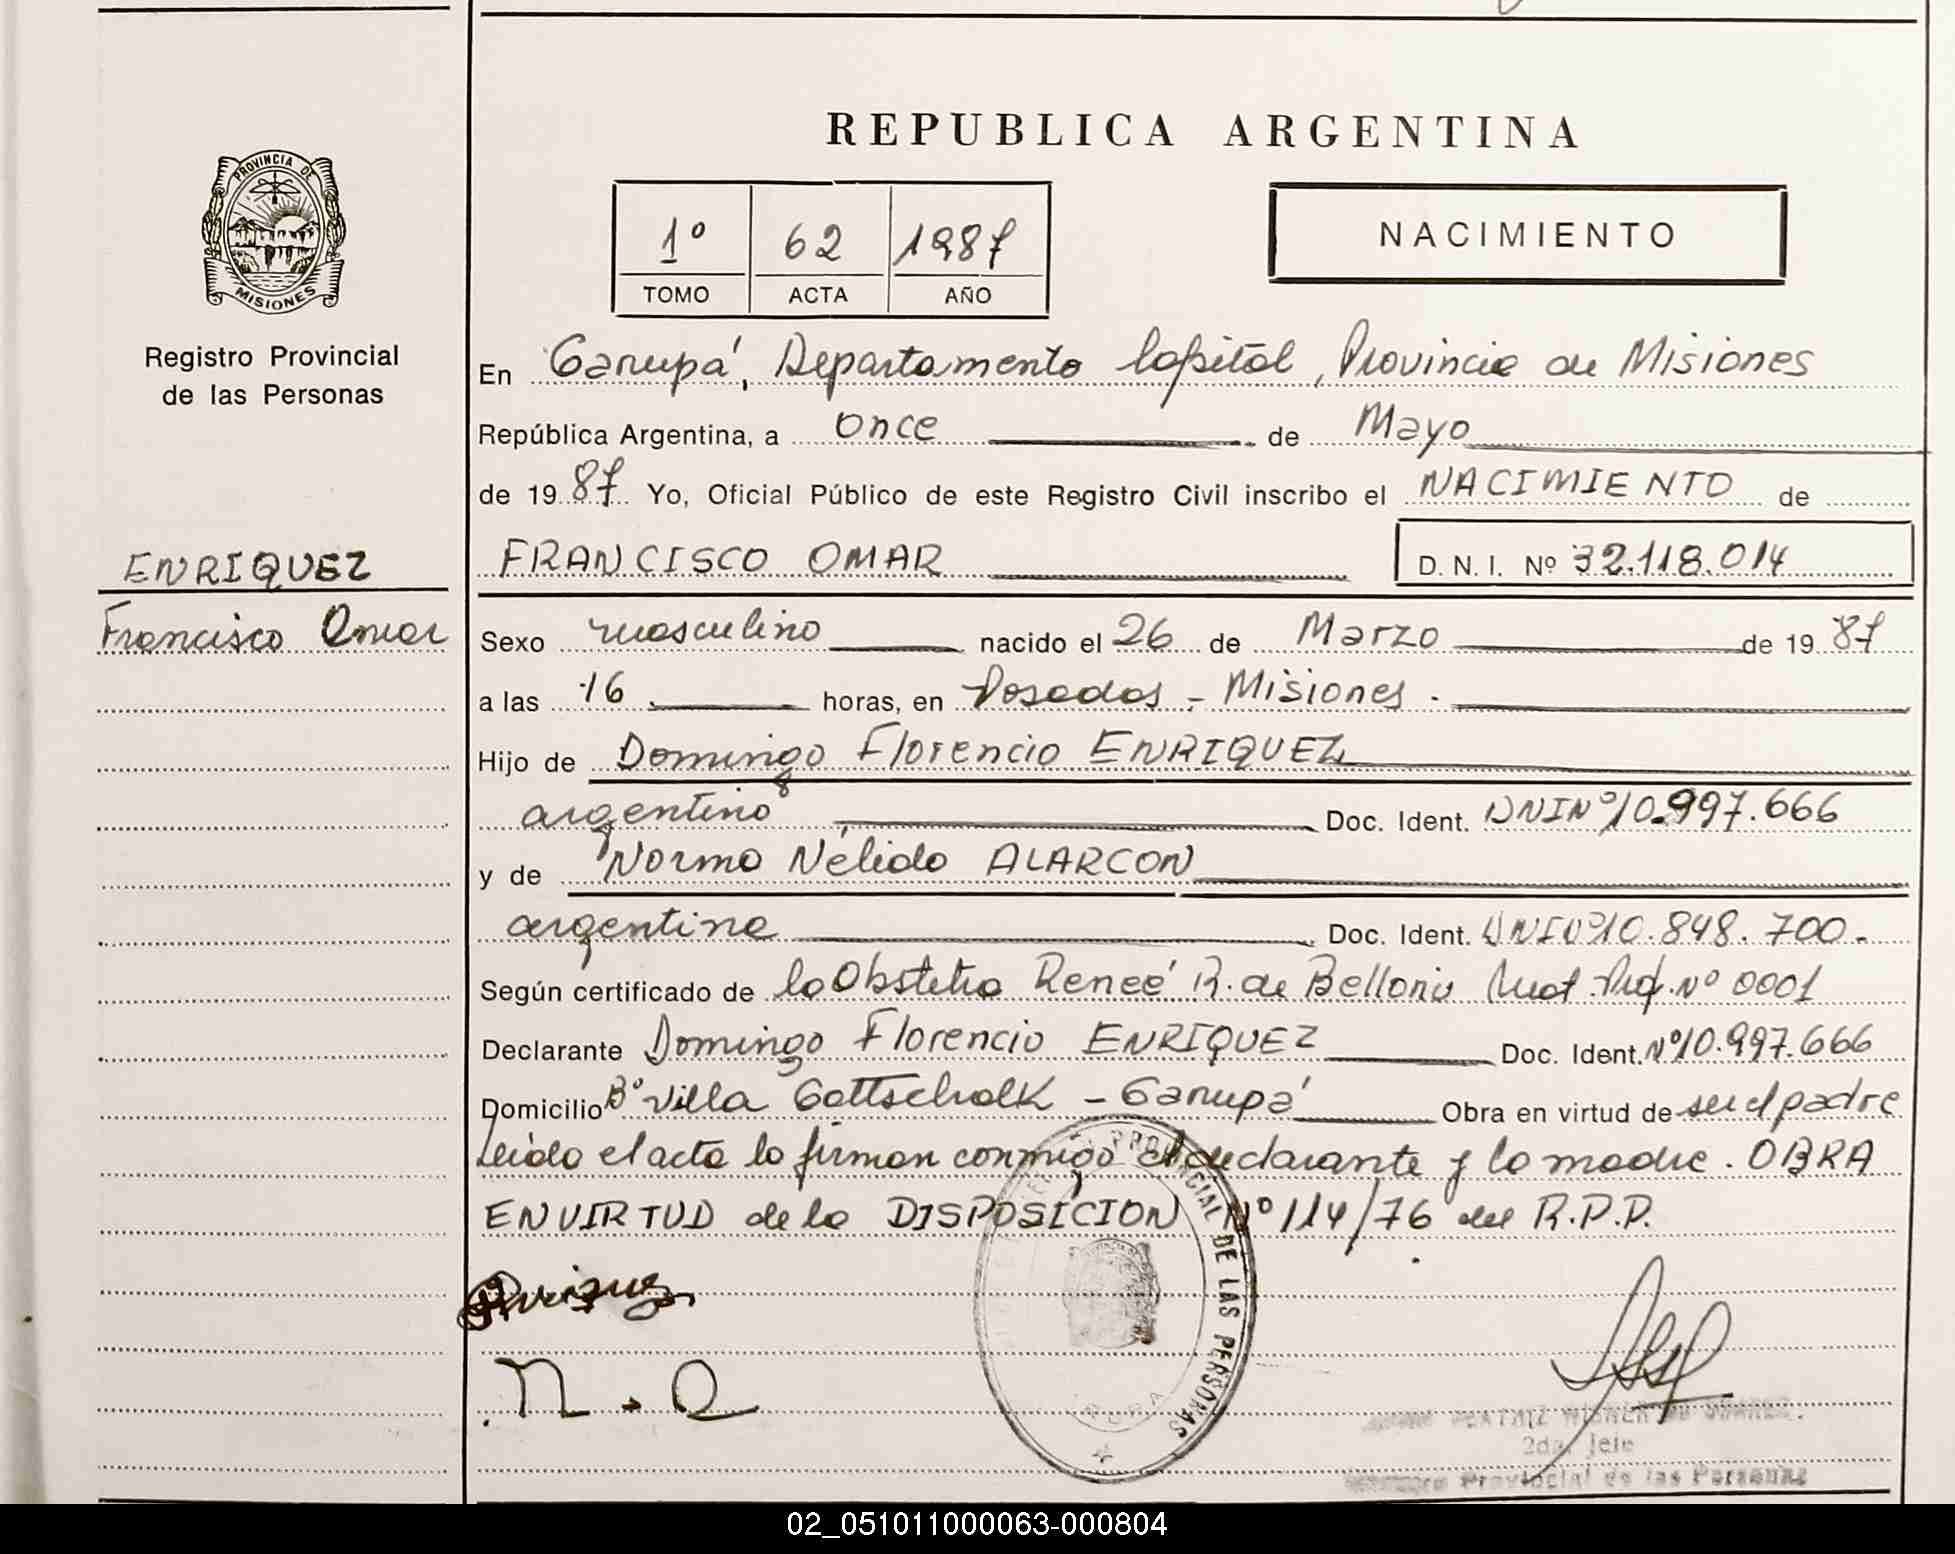 REPUBLICA ARGENTINA
PROVINCIA DE
MISIONES
Registro Provincial
de las Personas
1º 62 1987
TOMO ACTA AÑO
NACIMIENTO
En Garupá, Departamento Capital, Provincia de Misiones
República Argentina, a once de Mayo
de 1987 Yo, Oficial Público de este Registro Civil inscribo el NACIMIENTO de
ENRIQUEZ
FRANCISCO OMAR D.N.I. Nº 32.118.014
Francisco Omar
Sexo masculino nacido el 26 de Marzo de 1987
a las 16 horas, en Posadas - Misiones.
Hijo de Domingo Florencio ENRIQUEZ
argentino Doc. Ident. DNINº10.997.666
y de Norma Nélida ALARCON
argentina Doc. Ident. DNINº10.848.700.-
Según certificado de la Obstetra Reneé R. de Nº 0001
Declarante Domingo Florencio ENRIQUEZ Doc. Ident. Nº10.997.666
Domicilio Bº Villa Gottschalk - Garupá Obra en virtud de ser el padre
Leida el acta la firman conmigo el declarante y la madre. OBRA
EN VIRTUD de la DISPOSICION Nº 114/76 del R.P.P.
PROVINCIAL DE LAS PERSONAS
2da. Jefe
Provincial de las Personas
02_051011000063-000804